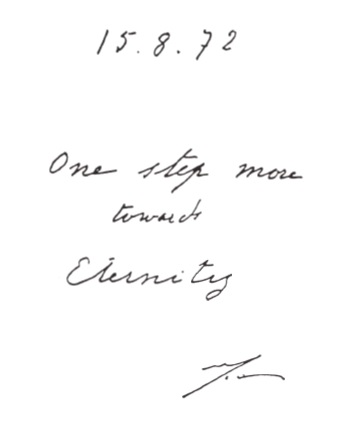 15.8.72
One step more
towards
Eternity